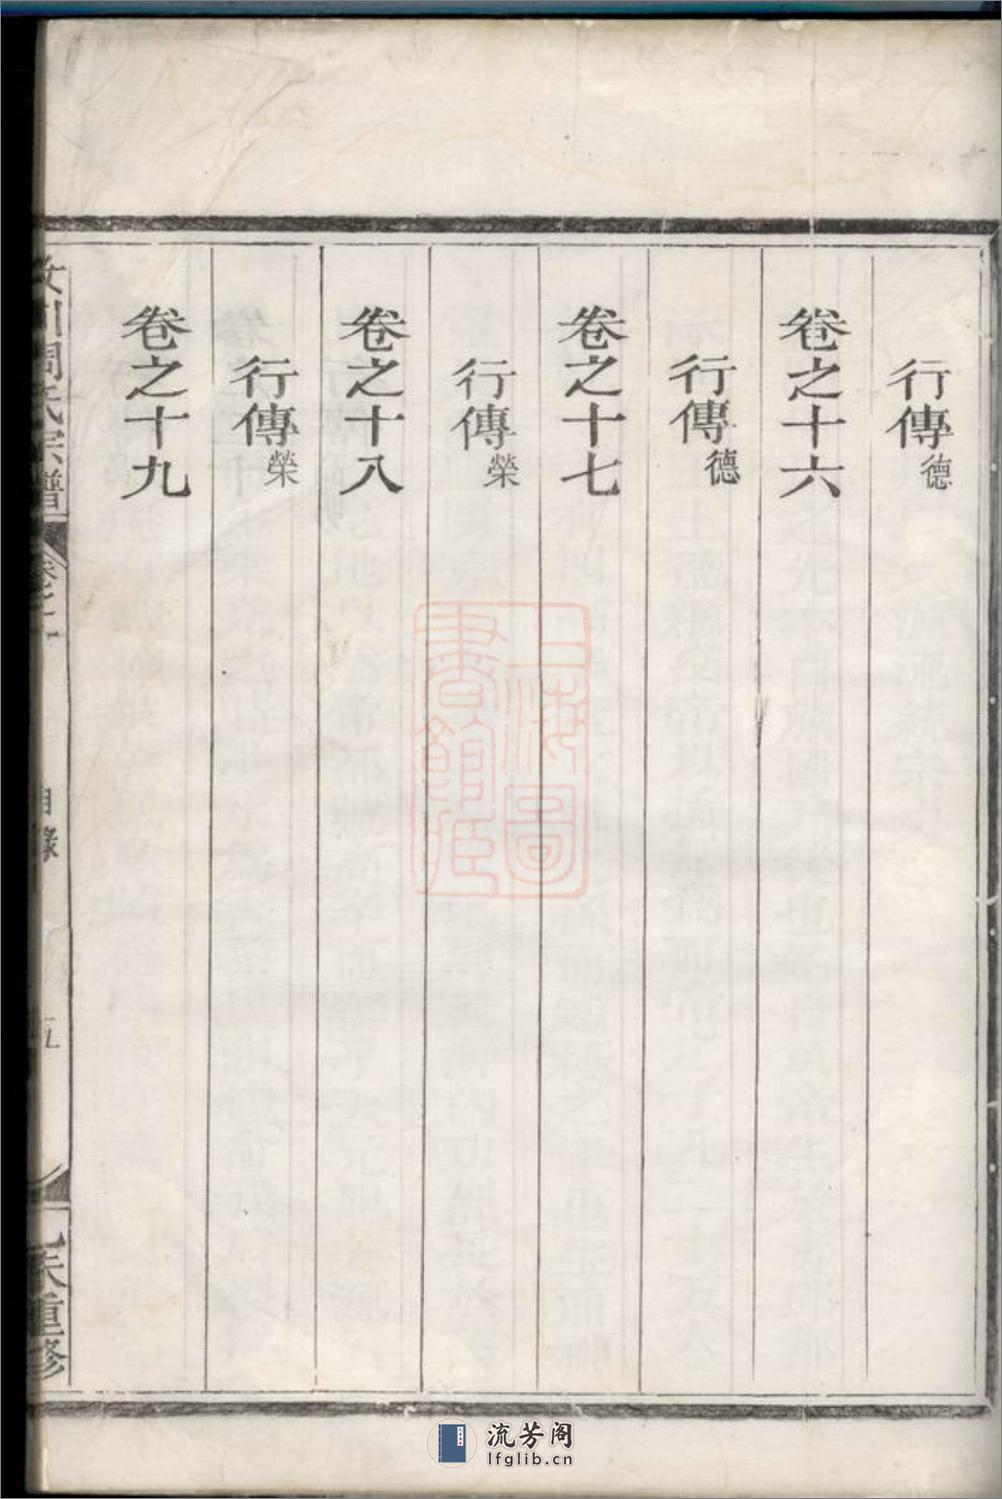 行傳德
卷之十六
行傳德
卷之十七
行傳榮
卷之十八
行傳榮
卷之十九
川周氏宗譜
卷之
目錄
五
未重修
上海圖書館藏
流芳阁
lfglib.cn